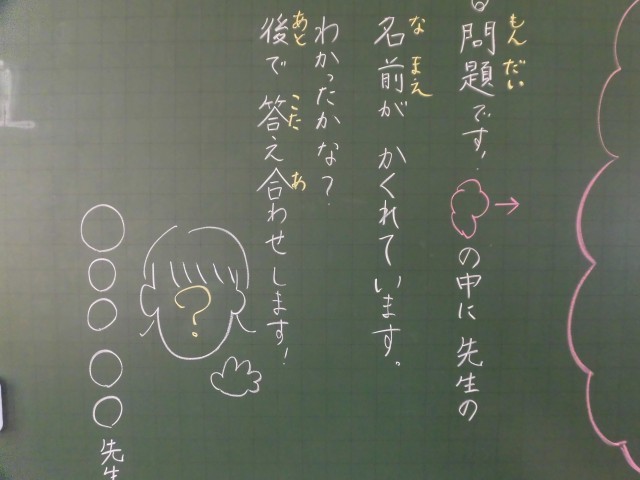 問題です!
もんだい
の中に先生の
名前が かくれています。
なまえ
わかったかな?
後で 答え合わせします!
あと こた あ
?
○○○ ○○先生